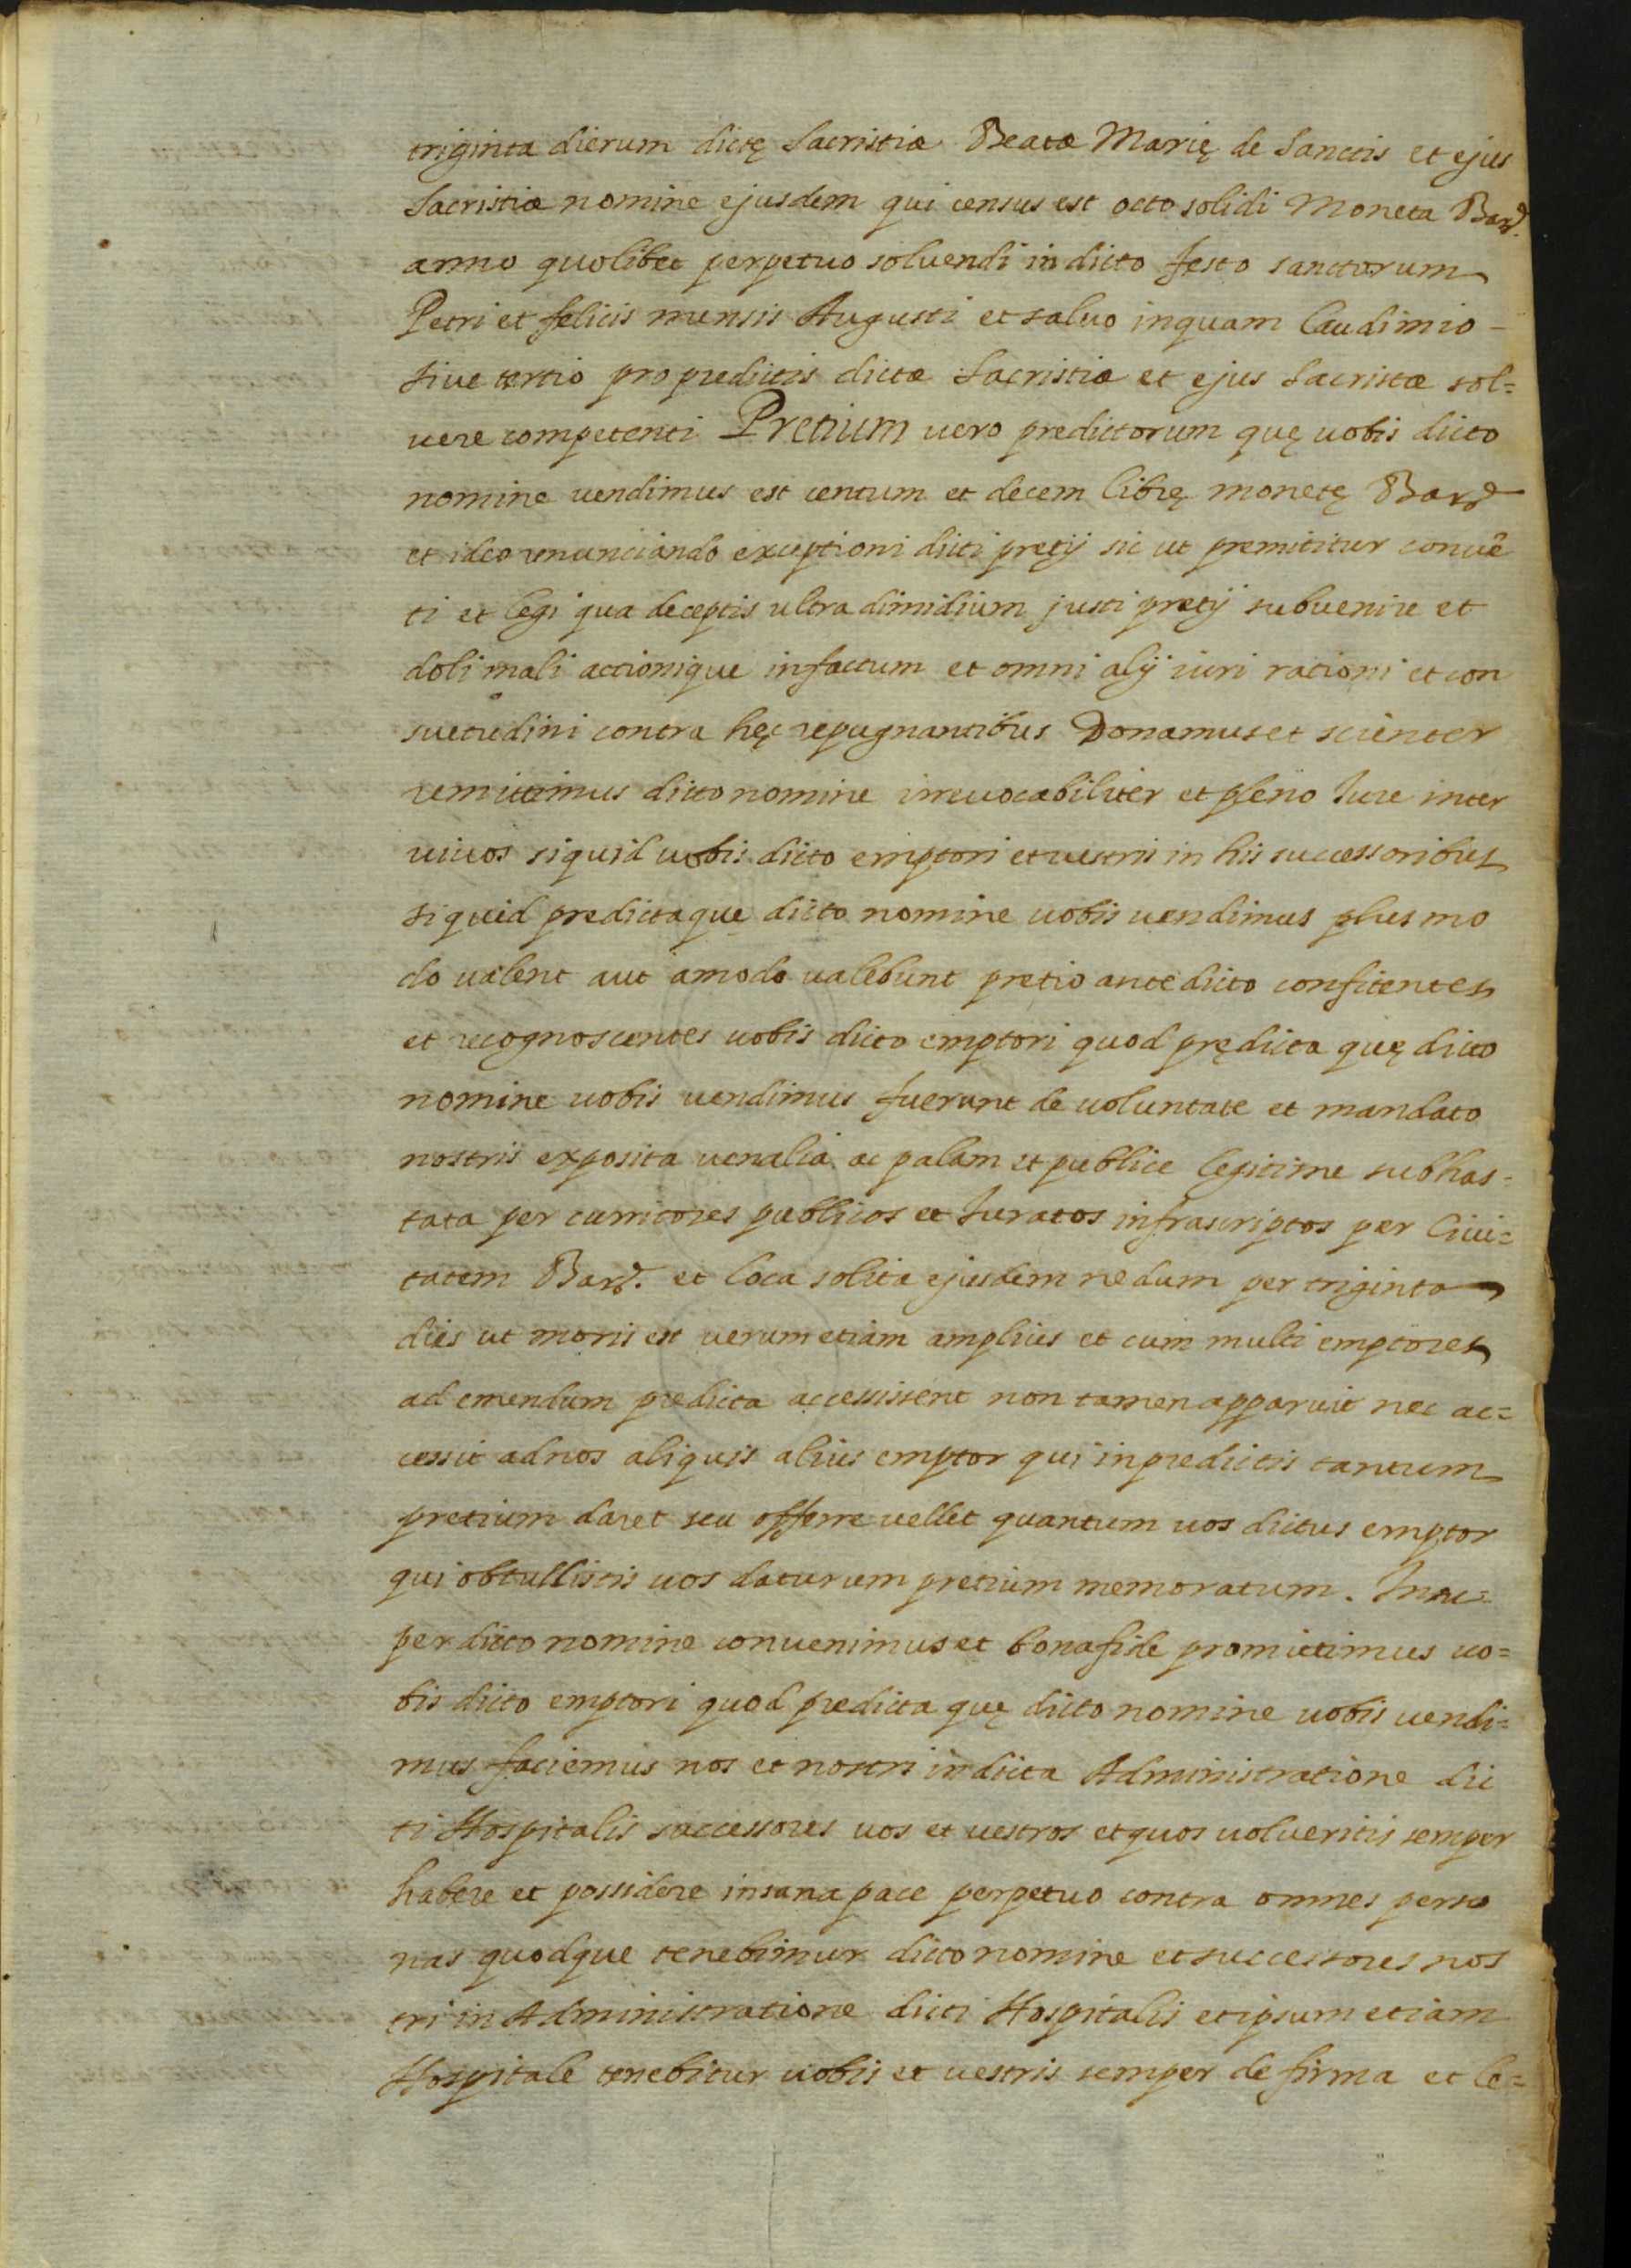 triginta dierum dictę Sacristiæ Beatæ Marię de Sanctis et ejus
Sacristiæ nomine ejusdem qui census est octo solidi Moneta Barð.
anno quolibet perpetuo solvendi in dicto festo sanctorum
Petri et felicis mensis Augusti et salvo inquam laudimio -
sive tertio pro predictis dictæ Sacristiæ et ejus Sacristæ sol=
vere competenti Pretium vero predictorum quę vobis dicto
nomine vendimus est centum et decem librę monetę Barð
et ideo renunciando exceptioni dicti pretij sic ut premititur convē
ti et legi qua deceptis ultra dimidium justi pretij subvenire et
doli mali actionique infactum et omni alij iuri rationi et con
suetudini contra hęc repugnantibus Donamus et scienter
remittimus dicto nomine irrevocabiliter et pleno Jure inter
vivos siquid vobis dicto emptori et vestris in his successoribus
si quid predicta que dicto nomine vobis vendimus plus mo
do valent aut amodo valebunt pretio ante dicto confitentes
et recognoscentes vobis dicto emptori quod prędicta quę dicto
nomine vobis vendimus fuerunt de voluntate et mandato
nostris exposita venalia ac palam et publice legitime subhas=
tata per curritores publicos et Juratos infrascriptos per Civi=
tatem Barð. et loca solita ejusdem nedum per triginta
dies ut moris est verum etiam amplius et cum multi emptores
ad emendum predicta accessissent non tamen apparuit nec ac=
cessit ad nos aliquis alius emptor qui in predictis tantum
pretium daret seu offerre vellet quantum vos dictus emptor
qui obtullistis vos daturum pretium memoratum. Insu=
per dicto nomine convenimus et bonafide promittimus vo=
bis dicto emptori quod predicta quę dicto nomine vobis vendi=
mus faciemus nos et nostri in dicta Administratione dic
ti Hospitalis successores vos et vestros et quos volueritis semper
habere et possidere insana pace perpetuo contra omnes perso
nas quodque tenebimur dicto nomine et successores nos
tri in Administratione dicti Hospitalis et ipsum etiam
Hospitale tenebitur vobis et vestris semper de firma et le=